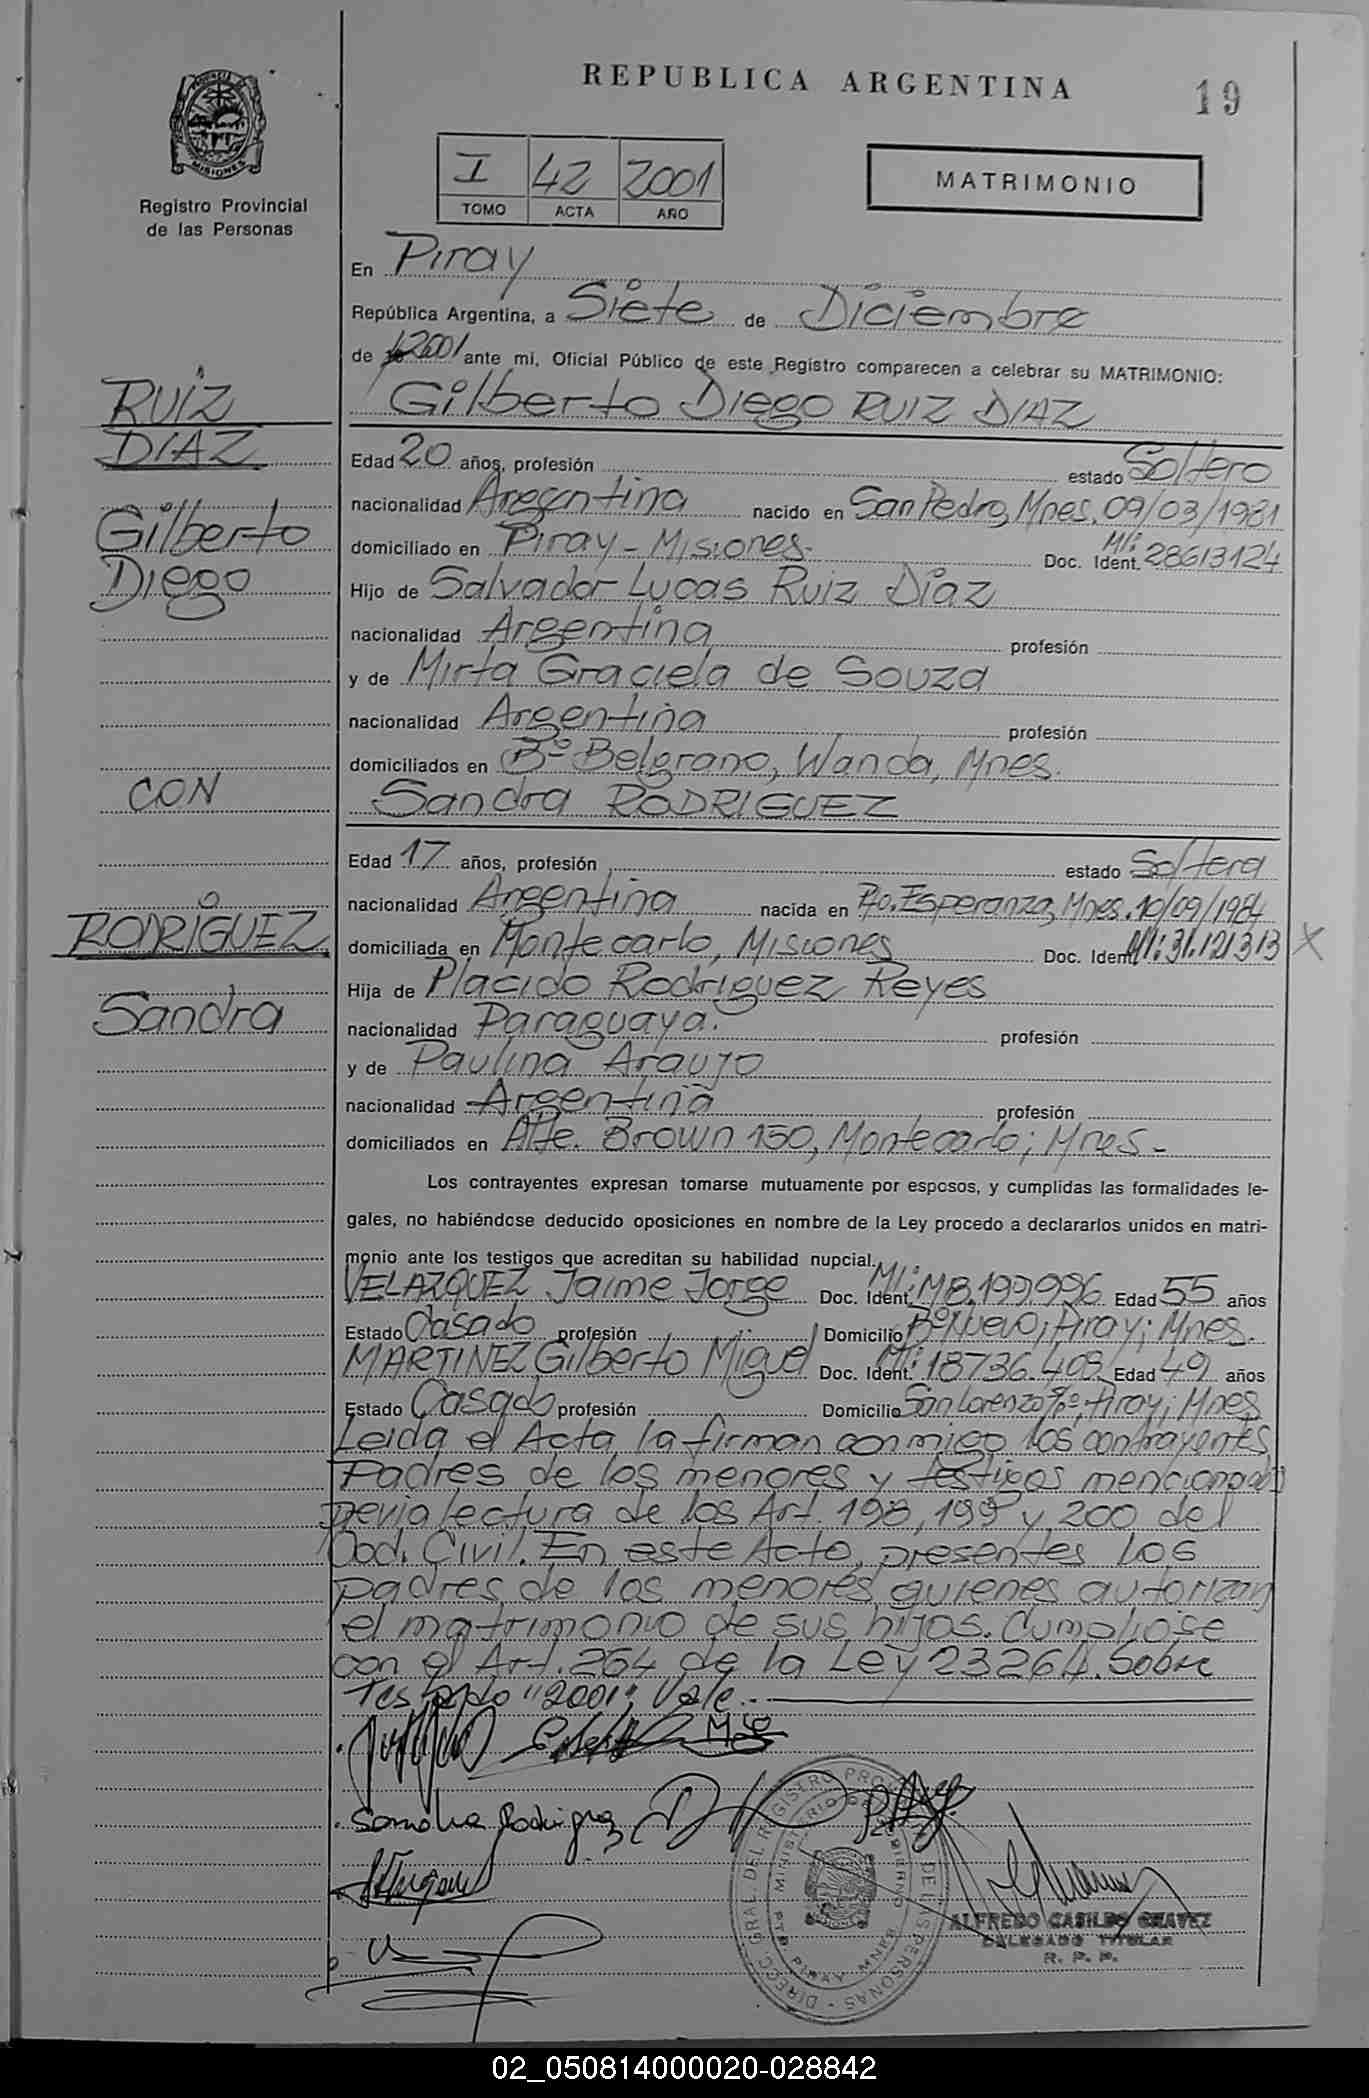 REPUBLICA ARGENTINA
19
MISIONES
Registro Provincial
de las Personas
I 42 2001
TOMO ACTA AÑO
MATRIMONIO
En Piray
República Argentina, a Siete de Diciembre
de 2001 ante mi, Oficial Público de este Registro comparecen a celebrar su MATRIMONIO:
RUIZ
DIAZ
Gilberto
Diego
Gilberto Diego RUIZ DIAZ
Edad 20 años, profesión estado Soltero
nacionalidad Argentina nacido en San Pedro, Mnes. 09/03/1981
domiciliado en Piray - Misiones. Doc. Ident. MI: 28613124
Hijo de Salvador Lucas Ruiz Díaz
nacionalidad Argentina profesión
y de Mirta Graciela de Souza
nacionalidad Argentina profesión
domiciliados en Bº Belgrano, Wanda, Mnes.
CON
Sandra RODRIGUEZ
Edad 17 años, profesión estado Soltera
nacionalidad Argentina nacida en Pto. Esperanza, Mnes. 10/09/1984
RODRIGUEZ
Sandra
domiciliada en Montecarlo, Misiones Doc. Ident. MI: 31.121313 X
Hija de Placido Rodriguez Reyes
nacionalidad Paraguaya. profesión
y de Paulina Araujo
nacionalidad Argentina profesión
domiciliados en Alte. Brown 150, Montecarlo; Mnes-
Los contrayentes expresan tomarse mutuamente por esposos, y cumplidas las formalidades le-
gales, no habiéndose deducido oposiciones en nombre de la Ley procedo a declararlos unidos en matri-
monio ante los testigos que acreditan su habilidad nupcial.
VELAZQUEZ Jaime Jorge Doc. Ident. MI: M8.199.996 Edad 55 años
Estado Casado profesión Domicilio Bº Nuevo; Piray; Mnes.
MARTINEZ Gilberto Miguel Doc. Ident. MI: 18736.403 Edad 49 años
Estado Casado profesión Domicilio San Lorenzo Piray; Mnes
Leida el Acta, la firman conmigo los contrayentes
Padres de los menores y testigos mencionados
previa lectura de los Art. 198, 199 y 200 del
Cod. Civil. En este Acto, presentes los
padres de los menores quienes autorizan
el matrimonio de sus hijos. Cumpliose
con el Art. 264 de la Ley 23264. Sobre
Testado "2001", Vale.
Sandra Rodriguez
DIRECC. GRAL. DEL REGISTRO PROV. DE LAS PERSONAS
MINISTERIO DE GOBIERNO
PTO PIRAY MNES
ALFREDO CASILDO CHAVEZ
DELEGADO TITULAR
R. P. P.
02_050814000020-028842